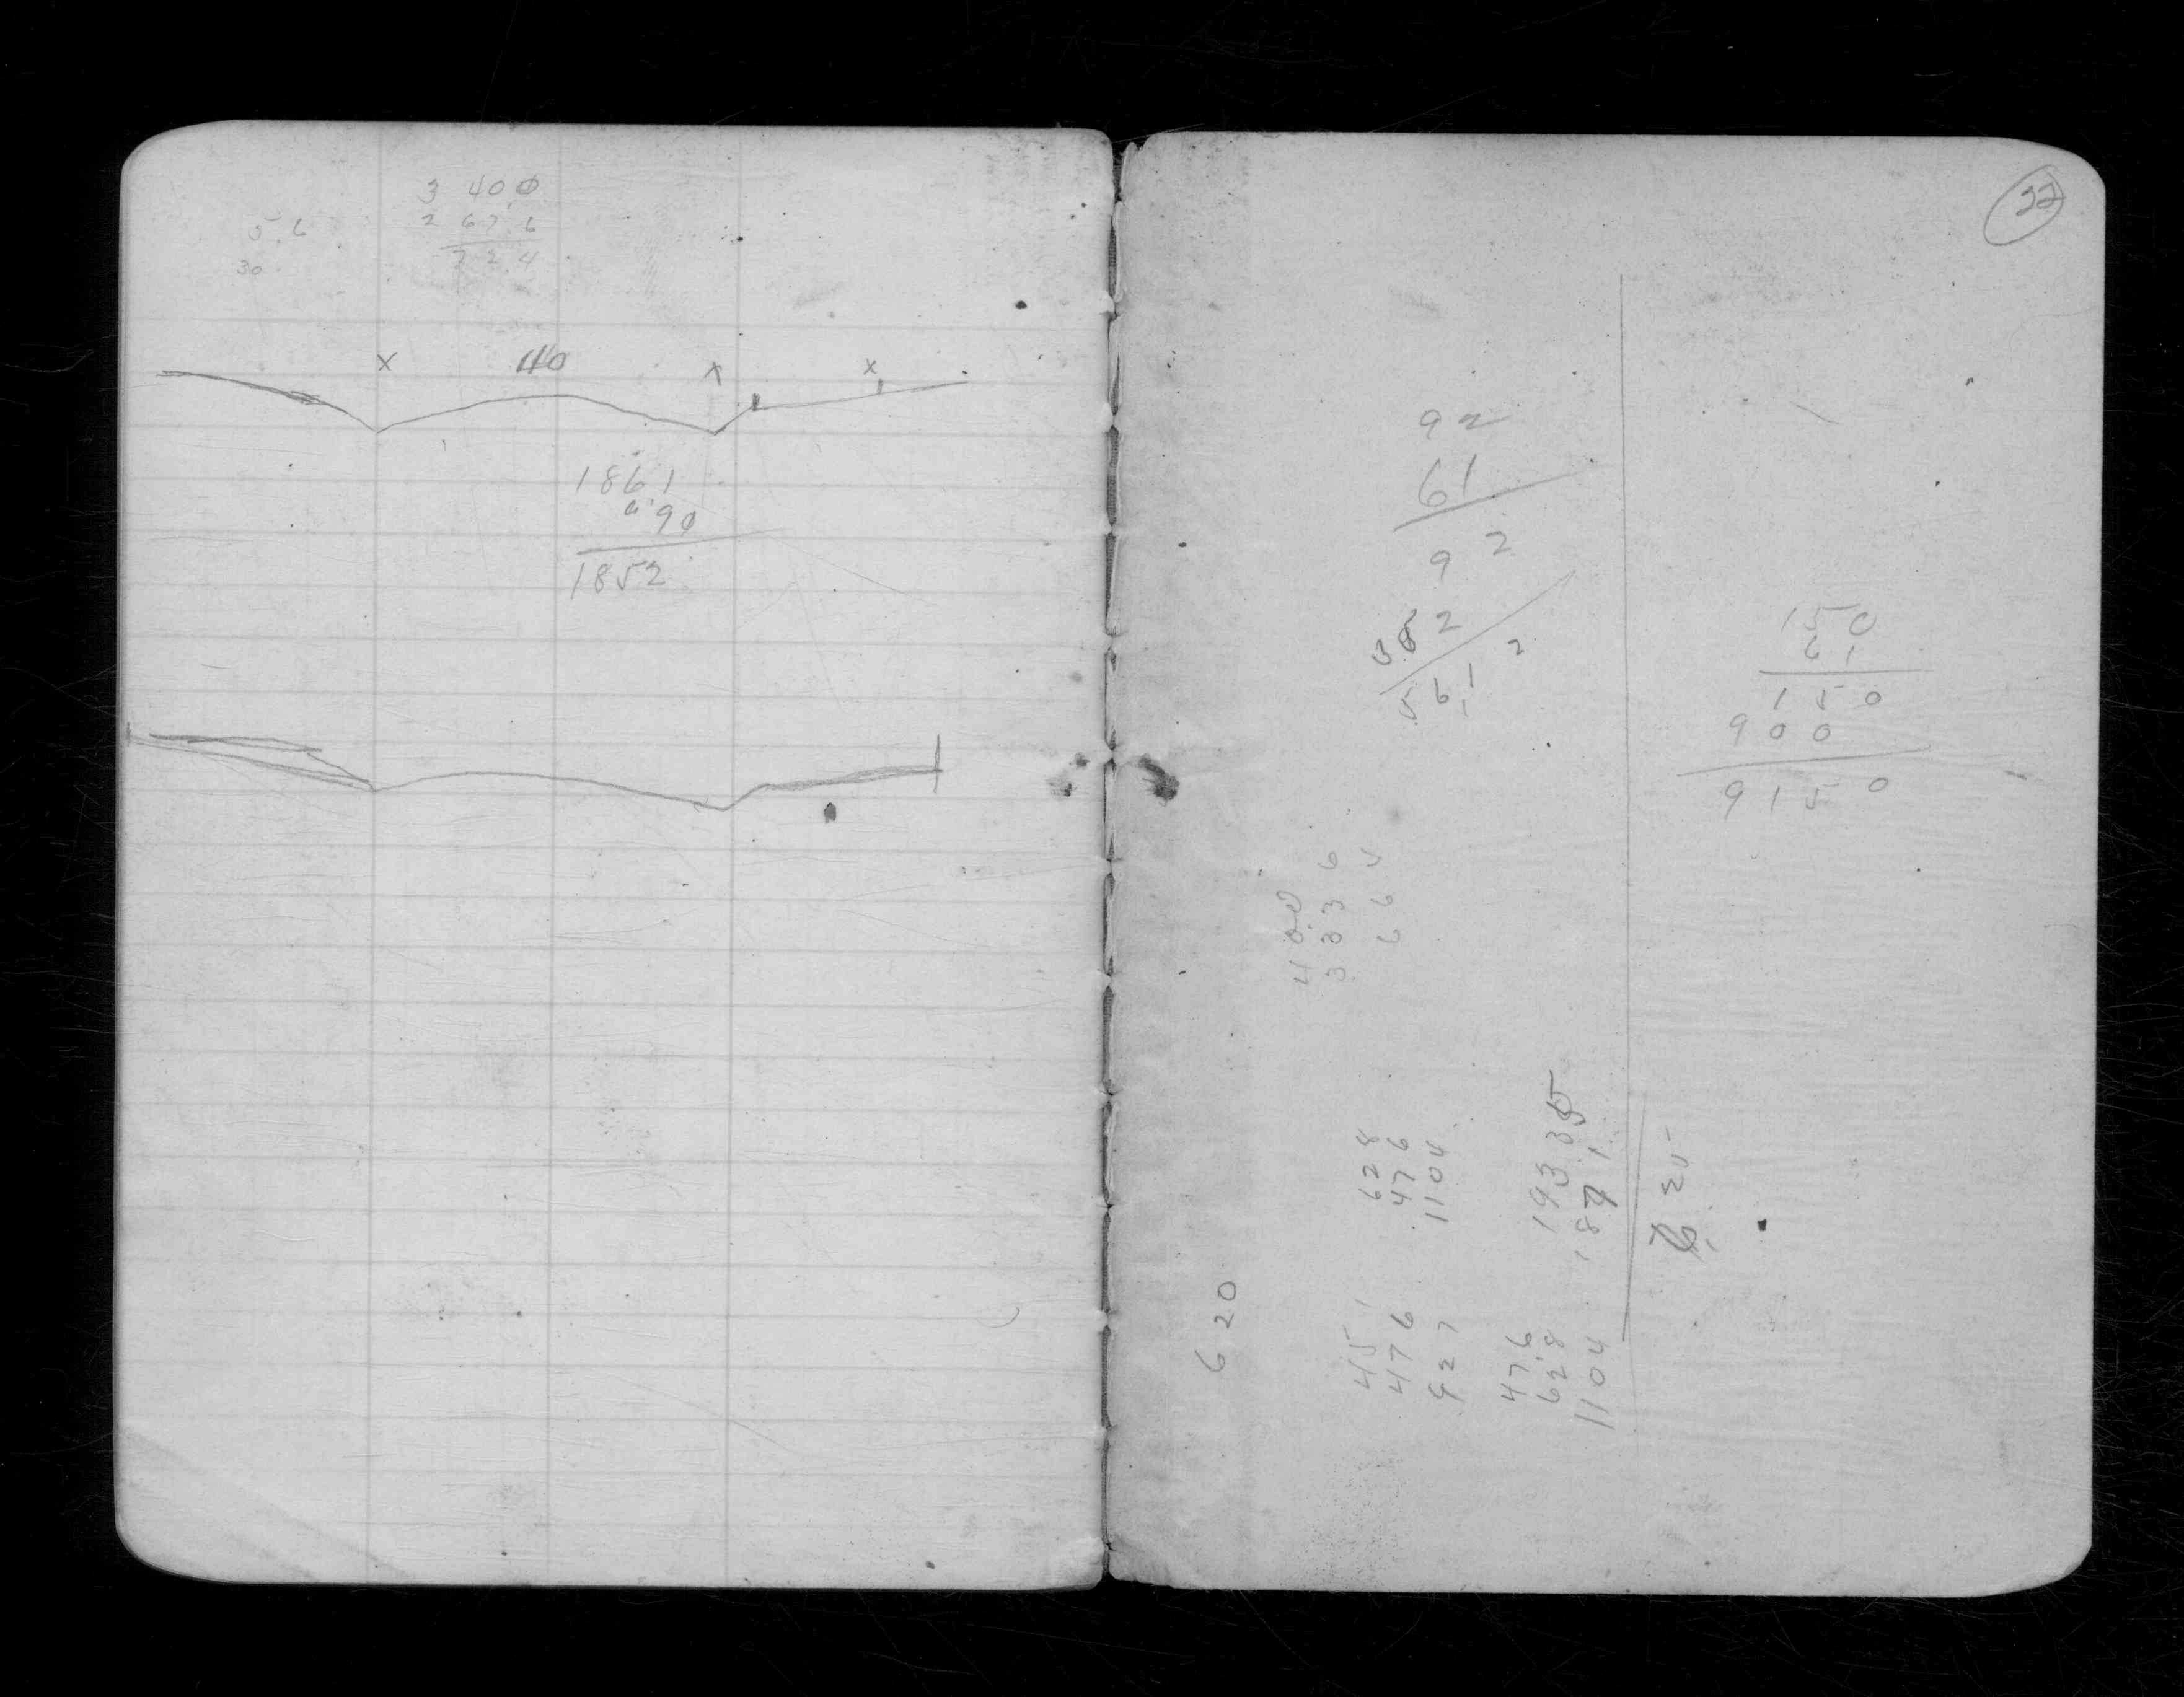 3 400
2 67.6
72.4
5.6
30
x 40 x x
1861
90
1852
22
92
61
92
552
561 2
150
61
150
900
9150
400
336
664
628
476
1104
1933
1871
620
451
476
927
476
628
1104